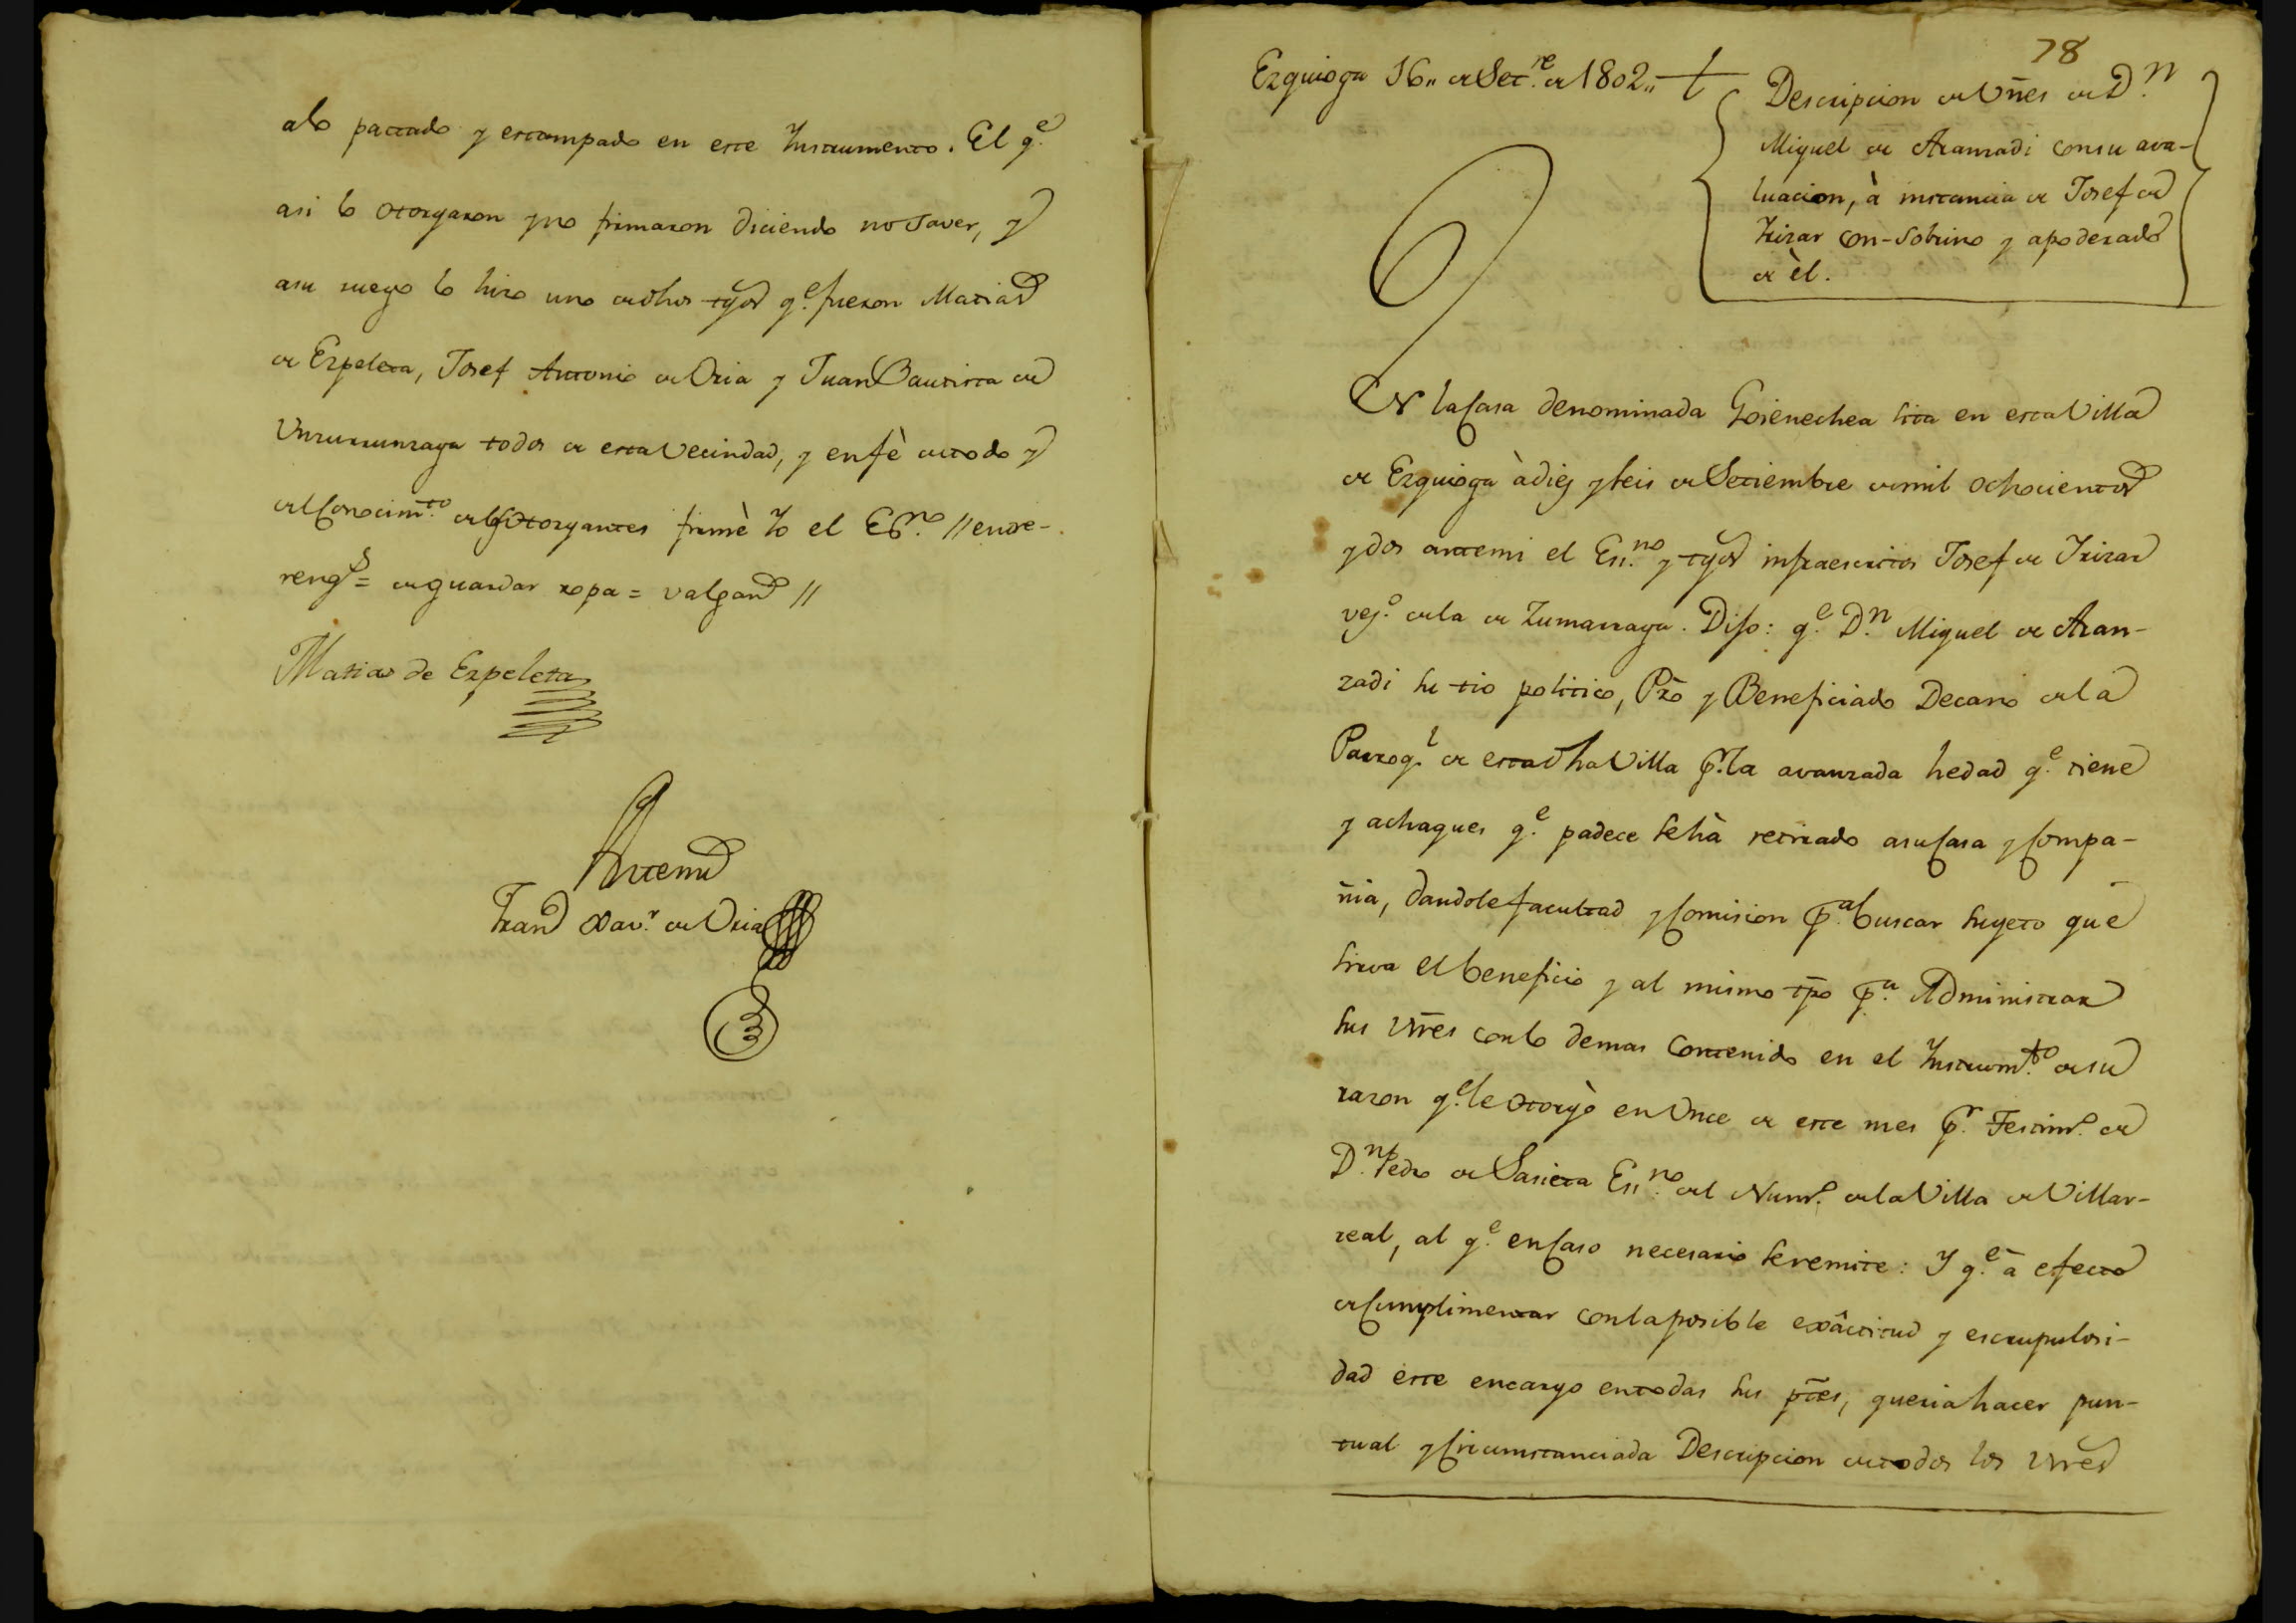 alo pactado y estampado en este Instrumento. El q.e
asi lo otorgaron y no firmaron diciendo no saver, y
asu ruego lo hizo uno de dhos tgos q.e fueron Matias
de Ezpeleta, Josef Antonio de Oria y Juan Bautista de
Unzurrunzaga todos de esta Vecindad, y enfè de todo y
del Conocim.to de los Otorgantes firmè Yo el Es.no // entre-
reng.s = de guardar ropa = valgan //
Matias de Ezpeleta
Antemi
Fran.co Xav.r de Oria
78
Ezquioga 16,, de Set.re de 1802,,
Descripcion de Vnes de D.n
Miguel de Aranzadi con su ava-
luacion, à instancia de Josef de
Yrizar con-sobrino y apoderado
de èl.
En la Casa denominada Goienechea sita en esta Villa
de Ezquioga à diez y seis de Setiembre de mil ochocientos
y dos ante mi el Es.no y tgos infraescritos Josef de Yrizar
vez.o de la de Zumarraga. Dijo: q.e D.n Miguel de Aran-
zadi su tio politico, Pro y Beneficiado Decano de la
Parroq.l de esta dha Villa p.r la avanzada hedad q.e tiene
y achaques q.e padece se hà retirado asu Casa y Compa-
ñia, dandole facultad y Comision p.a buscar sugeto que
sirva el beneficio y al mismo tpo p.a Administrar
sus Vnes con lo demas contenido en el Instrum.to de su
razon q.e le otorgò en Once de este mes p.r Testim.o de
D.n Pedro de Sasieta Es.no del Num.o de la Villa de Villar-
real, al q.e en Caso necesario se remite: Y q.e à efecto
de Cumplimentar con la posible exâctitud y escrupulosi-
dad este encargo en todas sus ptes, queria hacer pun-
tual y Circumstanciada Descripcion de todos los Vnes